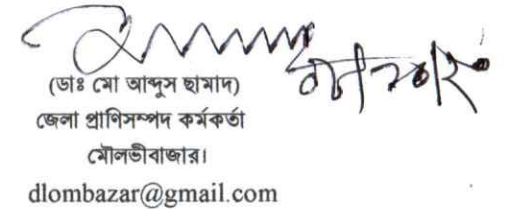 (ডাঃ মো আব্দুস ছামাদ)
জেলা প্রাণিসম্পদ কর্মকর্তা
মৌলভীবাজার।
dlombazar@gmail.com